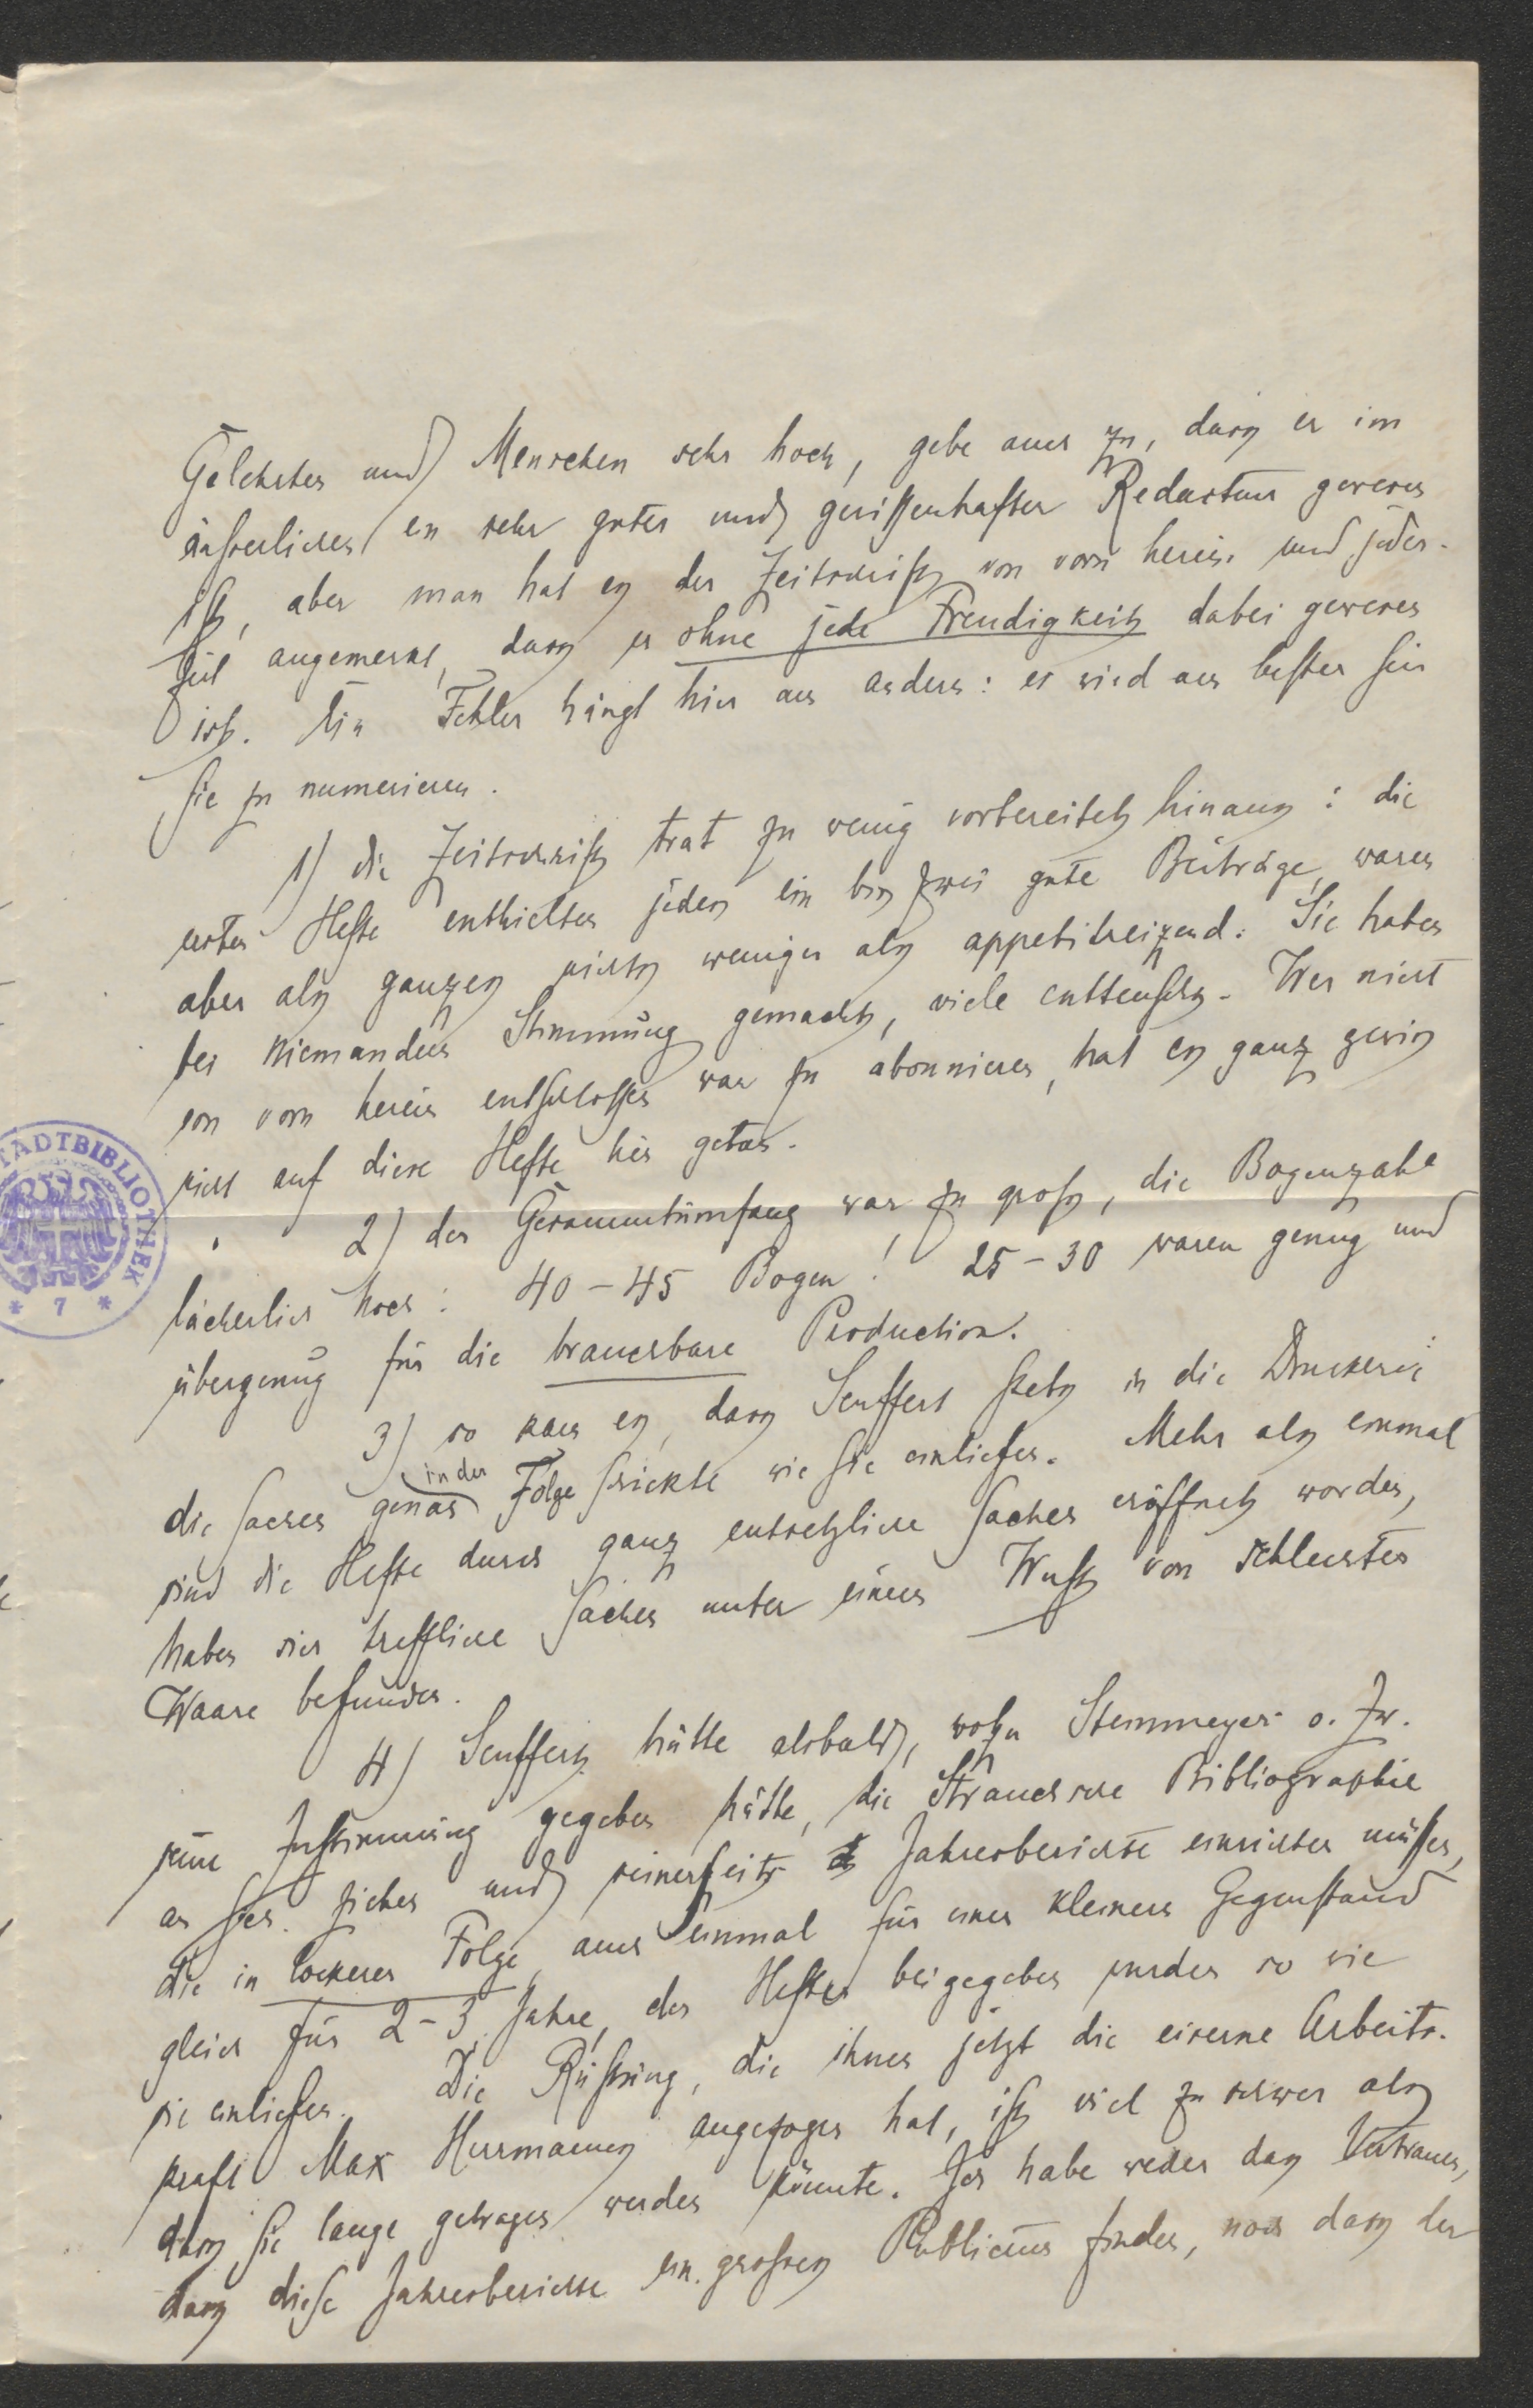 Gelehrten und Menschen sehr hoch, gebe auch zu, dass er im
äusserlichen ein sehr guter und gewissenhafter Redacteur gewesen
ist, aber man hat es der Zeitschrift von vorn herein und jeder-
zeit angemerkt, dass er ohne jede Freudigkeit dabei gewesen
ist. Ein Fehler hängt hier am andern: es wird am besten sein
sie zu numerieren.
1) die Zeitschrift trat zu wenig vorbereitet hinaus: die
ersten Hefte enthielten jedes ein bis zwei gute Beiträge, waren
aber als ganzes nichts weniger als appetitreizend. Sie haben
bei niemandem Stimmung gemacht, viele enttäuscht. Wer nicht
von vorn herein entschlossen war zu abonnieren, hat es ganz gewiss
nicht auf diese Hefte hin getan.
2) der Gesammtumfang war zu gross, die Bogenzahl
lächerlich hoch: 40-45 Bogen! 25-30 waren genug und
übergenug für die brauchbare Production.
3) so kam es, dass Seuffert stets in die Druckerei
die Sachen genau in der Folge schickte wie sie einliefen. Mehr als einmal
sind die Hefte durch ganz entsetzliche Sachen eröffnet worden,
haben sich treffliche Sachen unter einem Wust von schlechter
Waare befunden.
4) Seuffert hätte alsbald, wozu Steinmeyer s. Zt.
seine Zustimmung gegeben hätte, die Strauchsche Bibliographie
an sich ziehen und seinerseits Jahresberichte einrichten müssen,
die in lockerer Folge, auch einmal für einen kleinern Gegenstand
gleich für 2-3 Jahre, den Heften beigegeben wurden so wie
sie einliefen. Die Rüstung, die ihnen jetzt die eiserne Arbeits-
kraft Max Herrmanns angezogen hat, ist viel zu schwer als
dass sie lange getragen werden könnte. Ich habe weder das Vertrauen,
dass diese Jahresberichte ein grosses Publicum finden, noch dass der
STADTBIBLIOTHEK
* 7 *